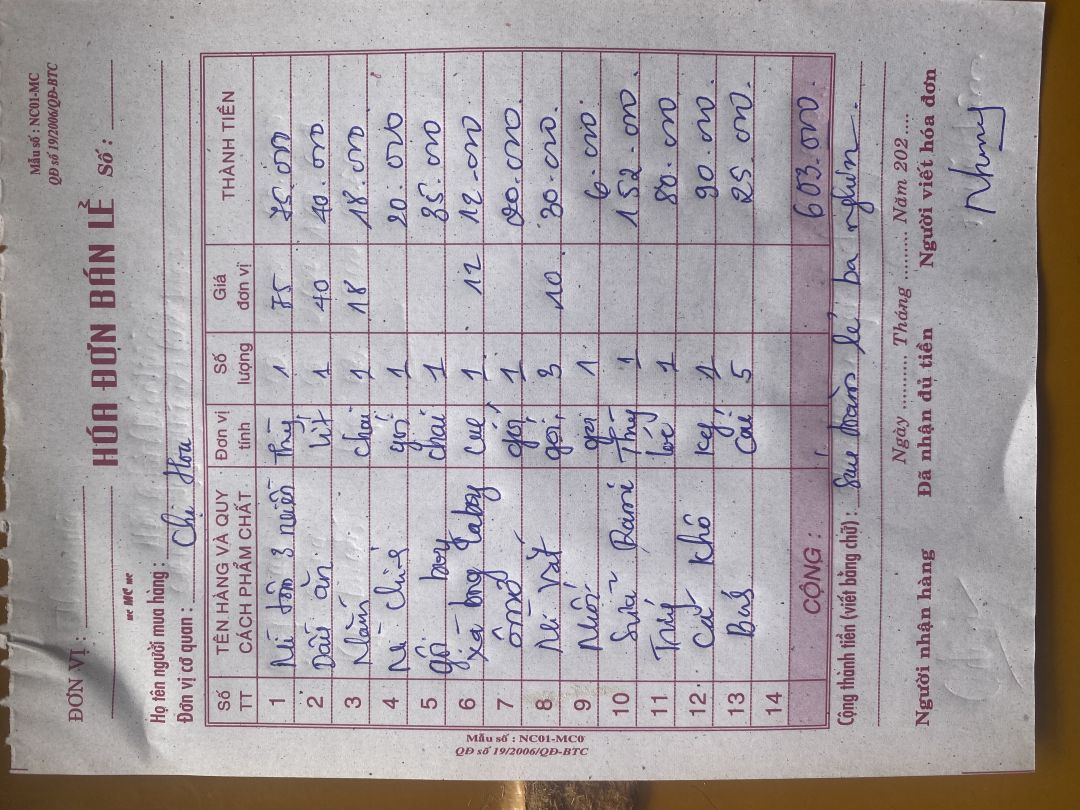 Mẫu số : NC01-MC
QĐ số 19/2006/QĐ-BTC
ĐƠN VỊ :
HÓA ĐƠN BÁN LẺ
Số :
Họ tên người mua hàng :
Đơn vị cơ quan : Chị Hoa
Số TT TÊN HÀNG VÀ QUY CÁCH PHẨM CHẤT Đơn vị tính Số lượng Giá đơn vị THÀNH TIỀN
1 Mì tôm 3 miền thg 1 75 75.000
2 Dầu ăn lít 1 40 40.000
3 Mắm chai 1 18 18.000
4 Mì chính gói 1 20.000
5 gội boy chai 1 35.000
6 xà bong Laboy cục 1 12 12.000
7 ống gói 1 20.000
8 Mì vắt gói 3 10 30.000
9 Muối gói 1 6.000
10 Sữa Rami Thg 1 152.000
11 Trứ lốc 1 80.000
12 Cá khô ký 1 90.000
13 Bus cái 5 25.000
14
CỘNG : 603.000
Cộng thành tiền (viết bằng chữ) : Sau trăm lẻ ba nghìn.
Ngày .......... Tháng ......... Năm 202 ....
Người nhận hàng Đã nhận đủ tiền Người viết hóa đơn
Nhung
Mẫu số : NC01-MC
QĐ số 19/2006/QĐ-BTC